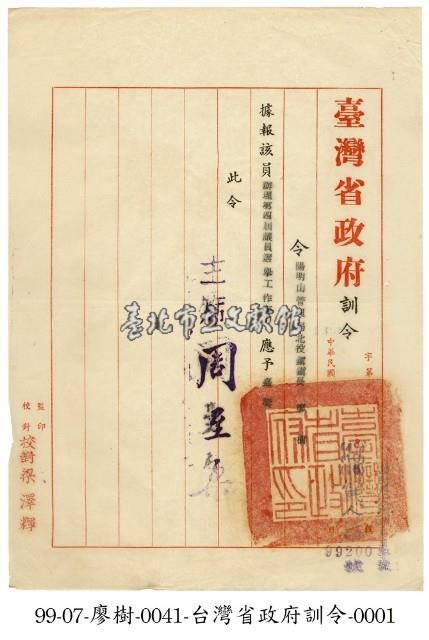 臺灣省政府訓令
字第
中華民國
令陽明山管理局北投鎮鎮長廖樹
據報該員辦理第四屆議員選舉工作
應予嘉獎
此令
主席周至柔
監印
校對
校對梁澤輝
99200
臺北市立文獻館
99-07-廖樹-0041-台灣省政府訓令-0001